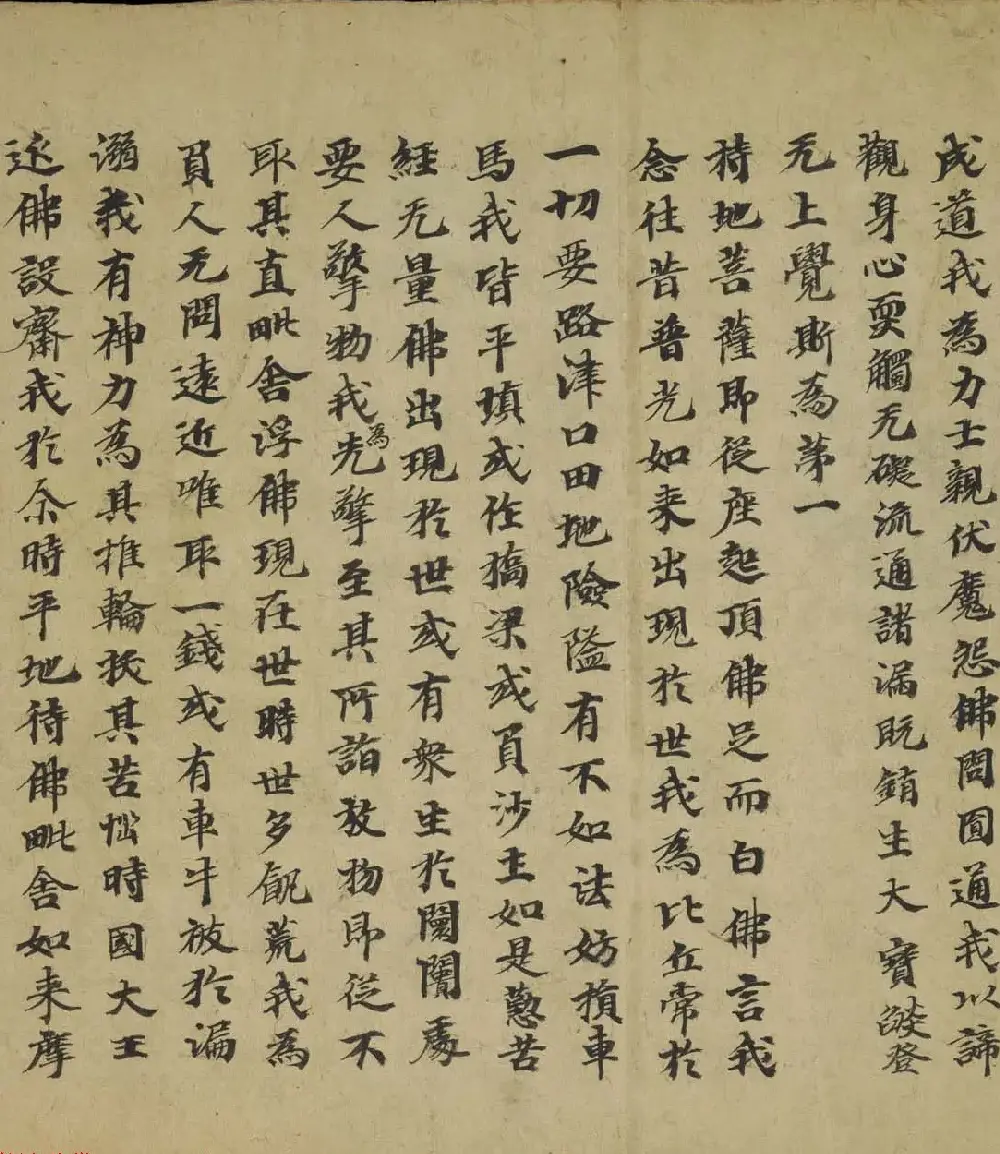 成道我為力士親伏魔怨佛問圓通我以諦
觀身心耎觸无礙流通諸漏既銷生大寶燄登
无上覺斯為苐一
持地菩薩即從座起頂佛足而白佛言我
念往昔普光如来出現於世我為比丘常於
一切要路津口田地險隘有不如法妨損車
馬我皆平填或作橋梁或負沙土如是懃苦
經无量佛出現於世或有衆生於闤闠處
要人擎物我先為擎至其所詣放物即從不
取其直毗舍浮佛現在世時世多飢荒我為
負人无問遠近唯取一錢或有車牛被於漏
溺我有神力為其推輪拔其苦惱時國大王
延佛設齋我於尒時平地待佛毗舍如来摩